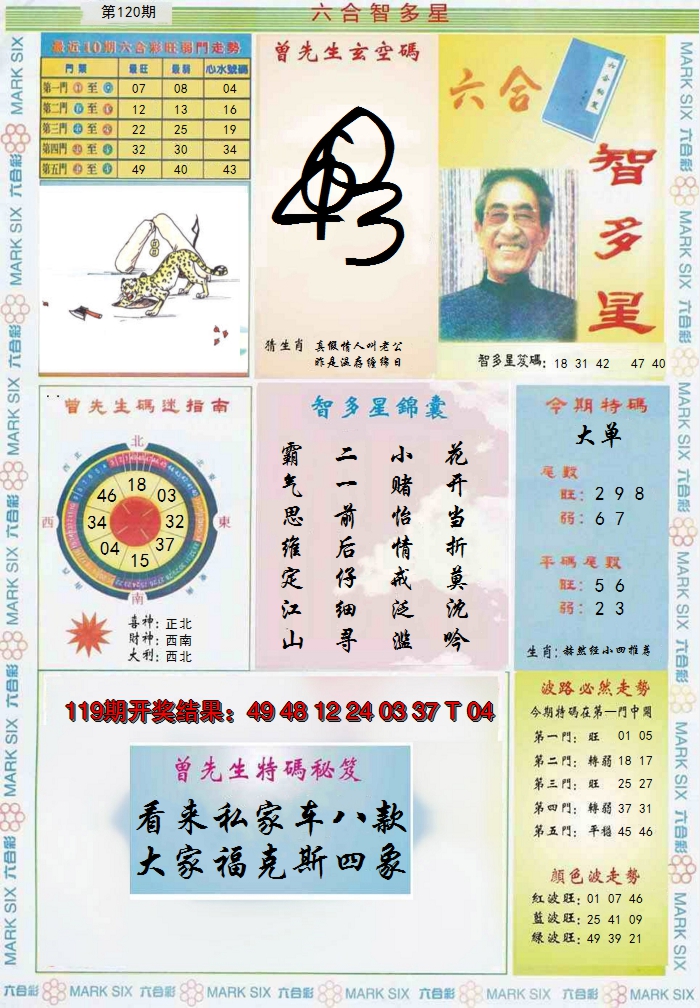 第120期
六合智多星
最近10期六合彩旺弱門走勢
門類 最旺 最弱 心水號碼
第一門 至 07 08 04
第二門 至 12 13 16
第三門 至 22 25 19
第四門 至 32 30 34
第五門 至 49 40 43
曾先生玄空碼
猜生肖 真假情人叫老公
昨是温存缠绵日
六合
智多星
智多星笈碼: 18 31 42 47 40
曾先生碼迷指南
北
西
東
南
46 18 03
34 32
04 15 37
喜神: 正北
財神: 西南
大利: 西北
智多星錦囊
花开当折莫沈吟
小赌怡情戒泛滥
二一前后仔细寻
霸气思维定江山
今期特碼
大单
尾數
旺: 2 9 8
弱: 6 7
平碼尾數
旺: 5 6
弱: 2 3
生肖: 赫然经小四推荐
119期开奖结果: 49 48 12 24 03 37 T 04
曾先生特碼秘笈
看来私家车八款
大家福克斯四象
波路必然走勢
今期特碼在第一門中開
第一門: 旺 01 05
第二門: 轉弱 18 17
第三門: 旺 25 27
第四門: 轉弱 37 31
第五門: 平穩 45 46
顏色波走勢
紅波旺: 01 07 46
藍波旺: 25 41 09
綠波旺: 49 39 21
六合彩 MARK SIX 六合彩 MARK SIX 六合彩 MARK SIX 六合彩 MARK SIX 六合彩 MARK SIX